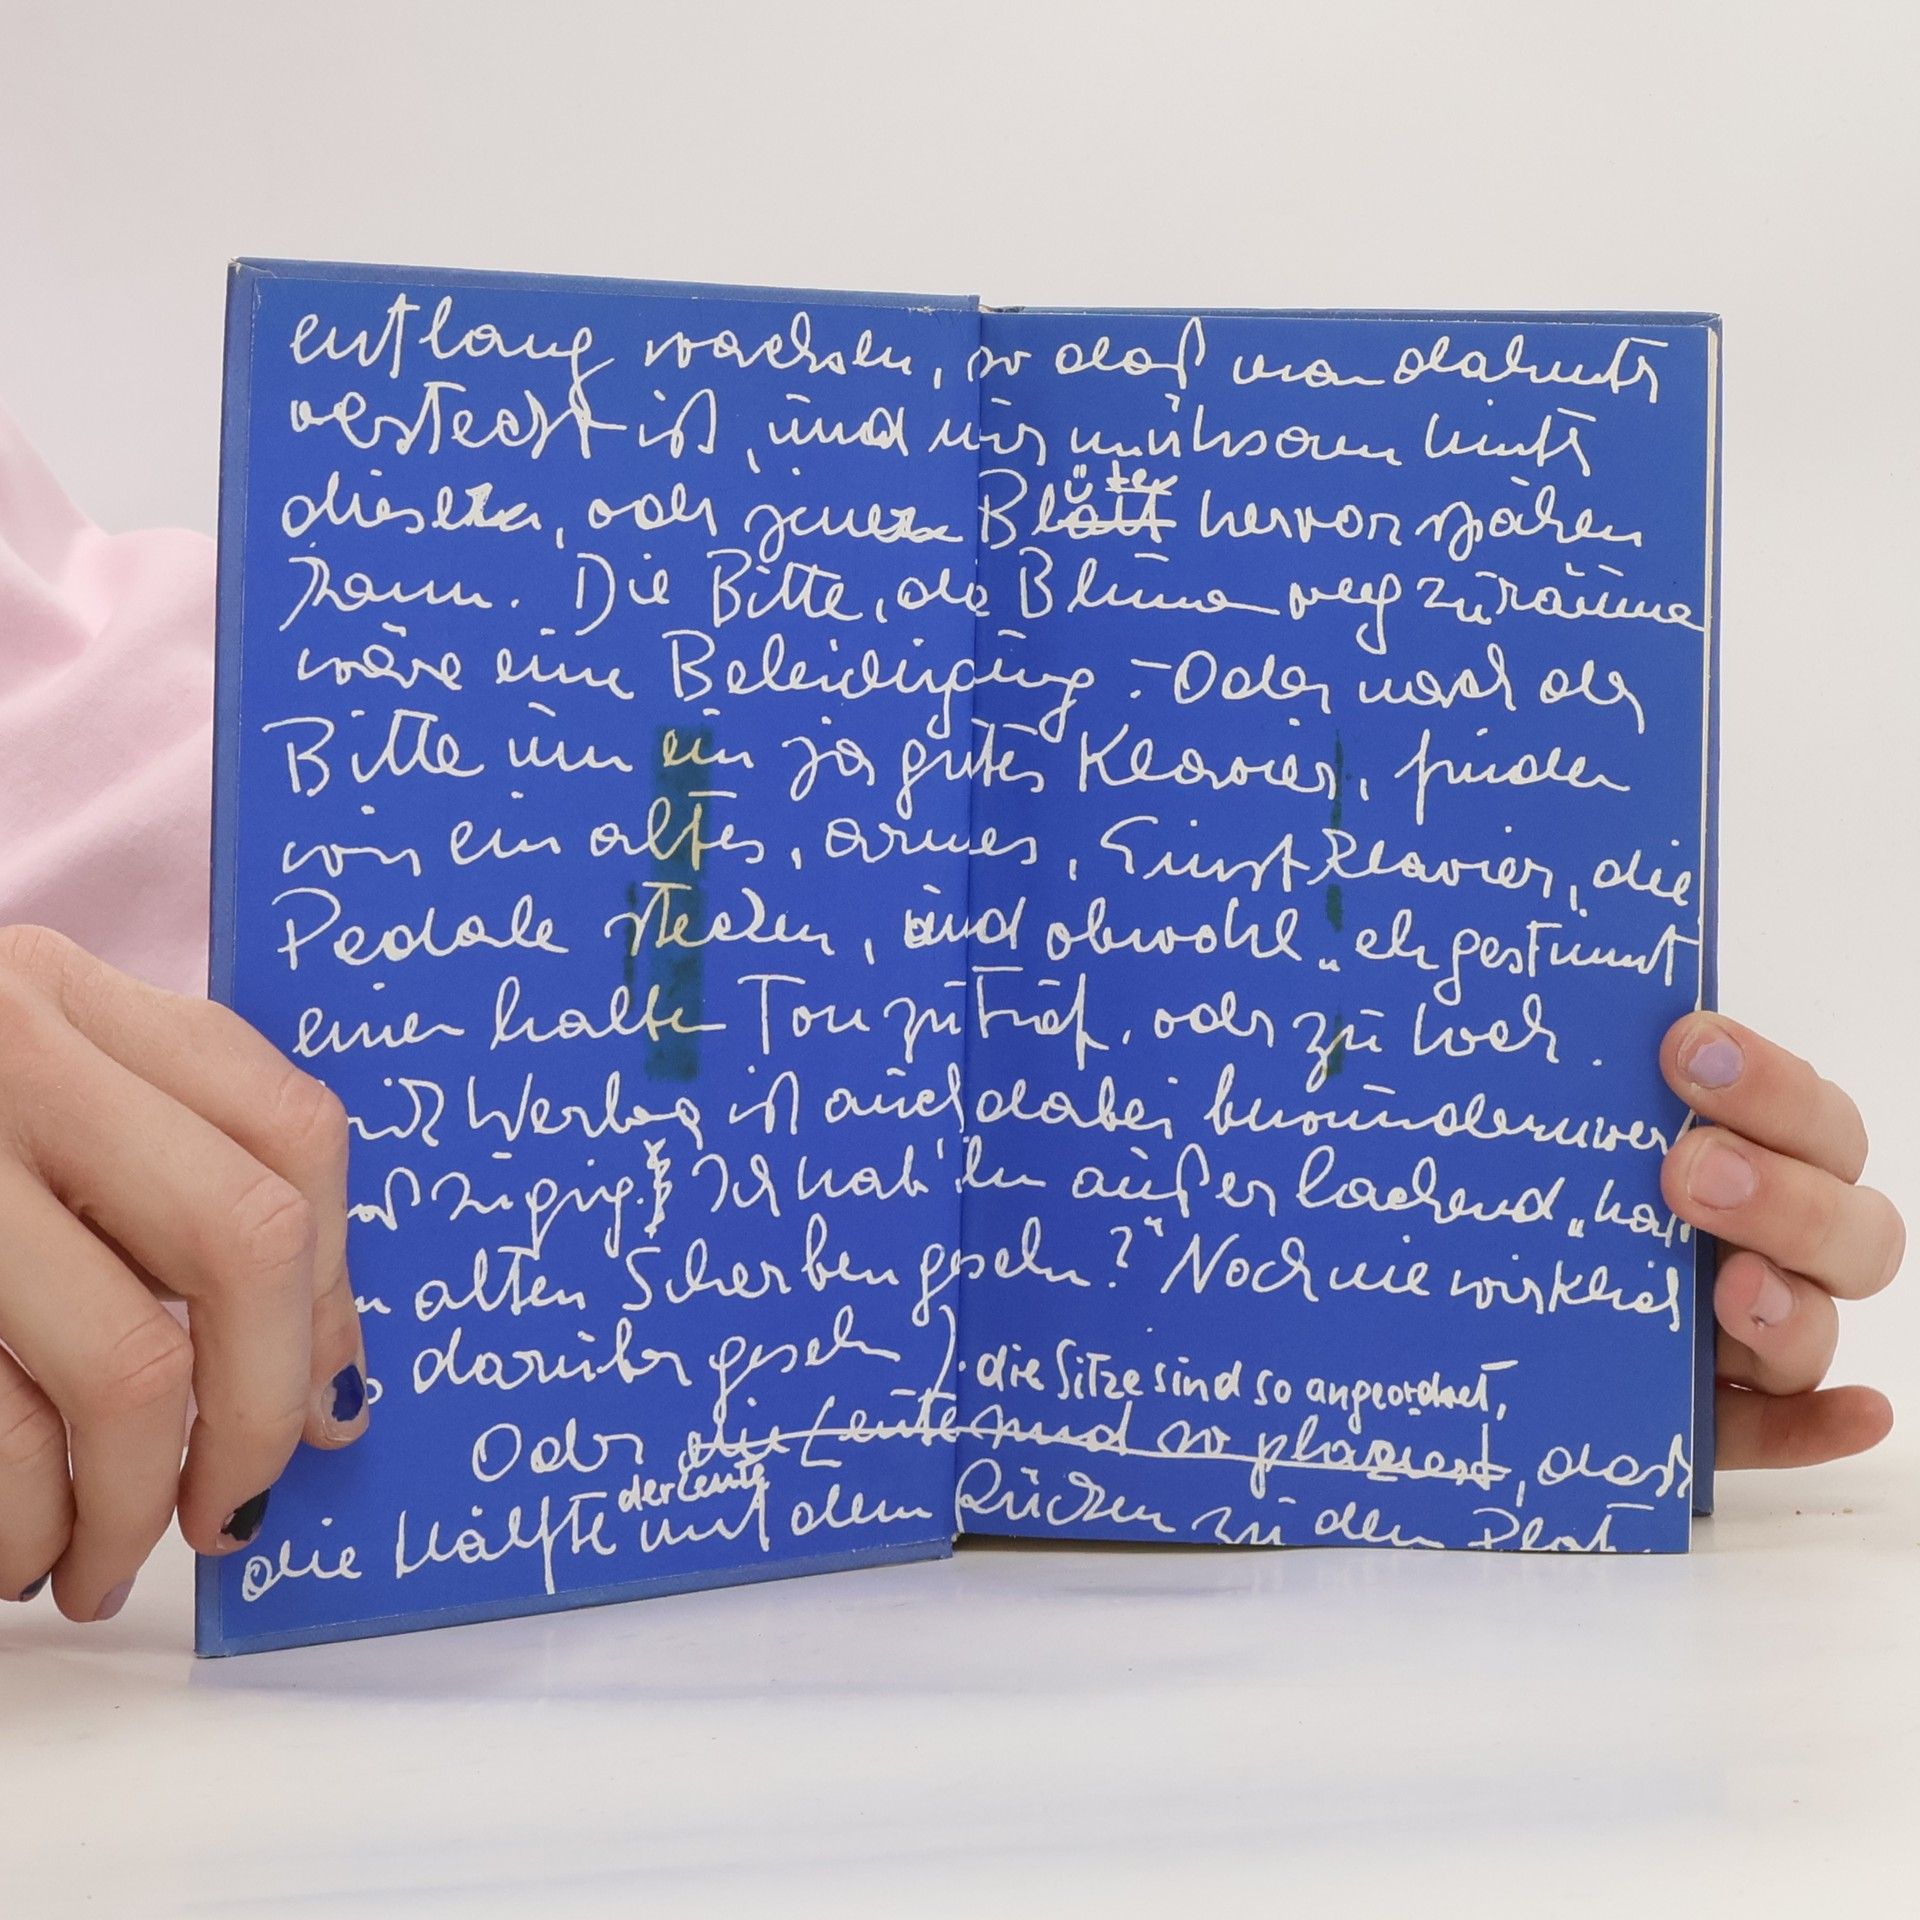 entlang wachsen, so daß man dahinter
versteckt ist, und nur mühsam hinter
dieser, oder jener Blüte hervor spähen
kann. Die Bitte, die Blumen wegzuräumen
wäre eine Beleidigung. - Oder nach der
Bitte um ein ja gutes Klavier, finden
wir ein altes, armes, Einstklavier, die
Pedale stecken, und obwohl „eh gestimmt
einen halben Ton zu tief, oder zu hoch.
Werbag ist auch dabei bewundernswert
zügig. Ich hab' ihn außer lachend „hat
alten Scherben gesehn?" Noch nie wirklich
darüber gesehn).
die Sitze sind so angeordnet,
Oder die Leute sind so plaziert, daß
der Leute
die Hälfte mit dem Rücken zu den